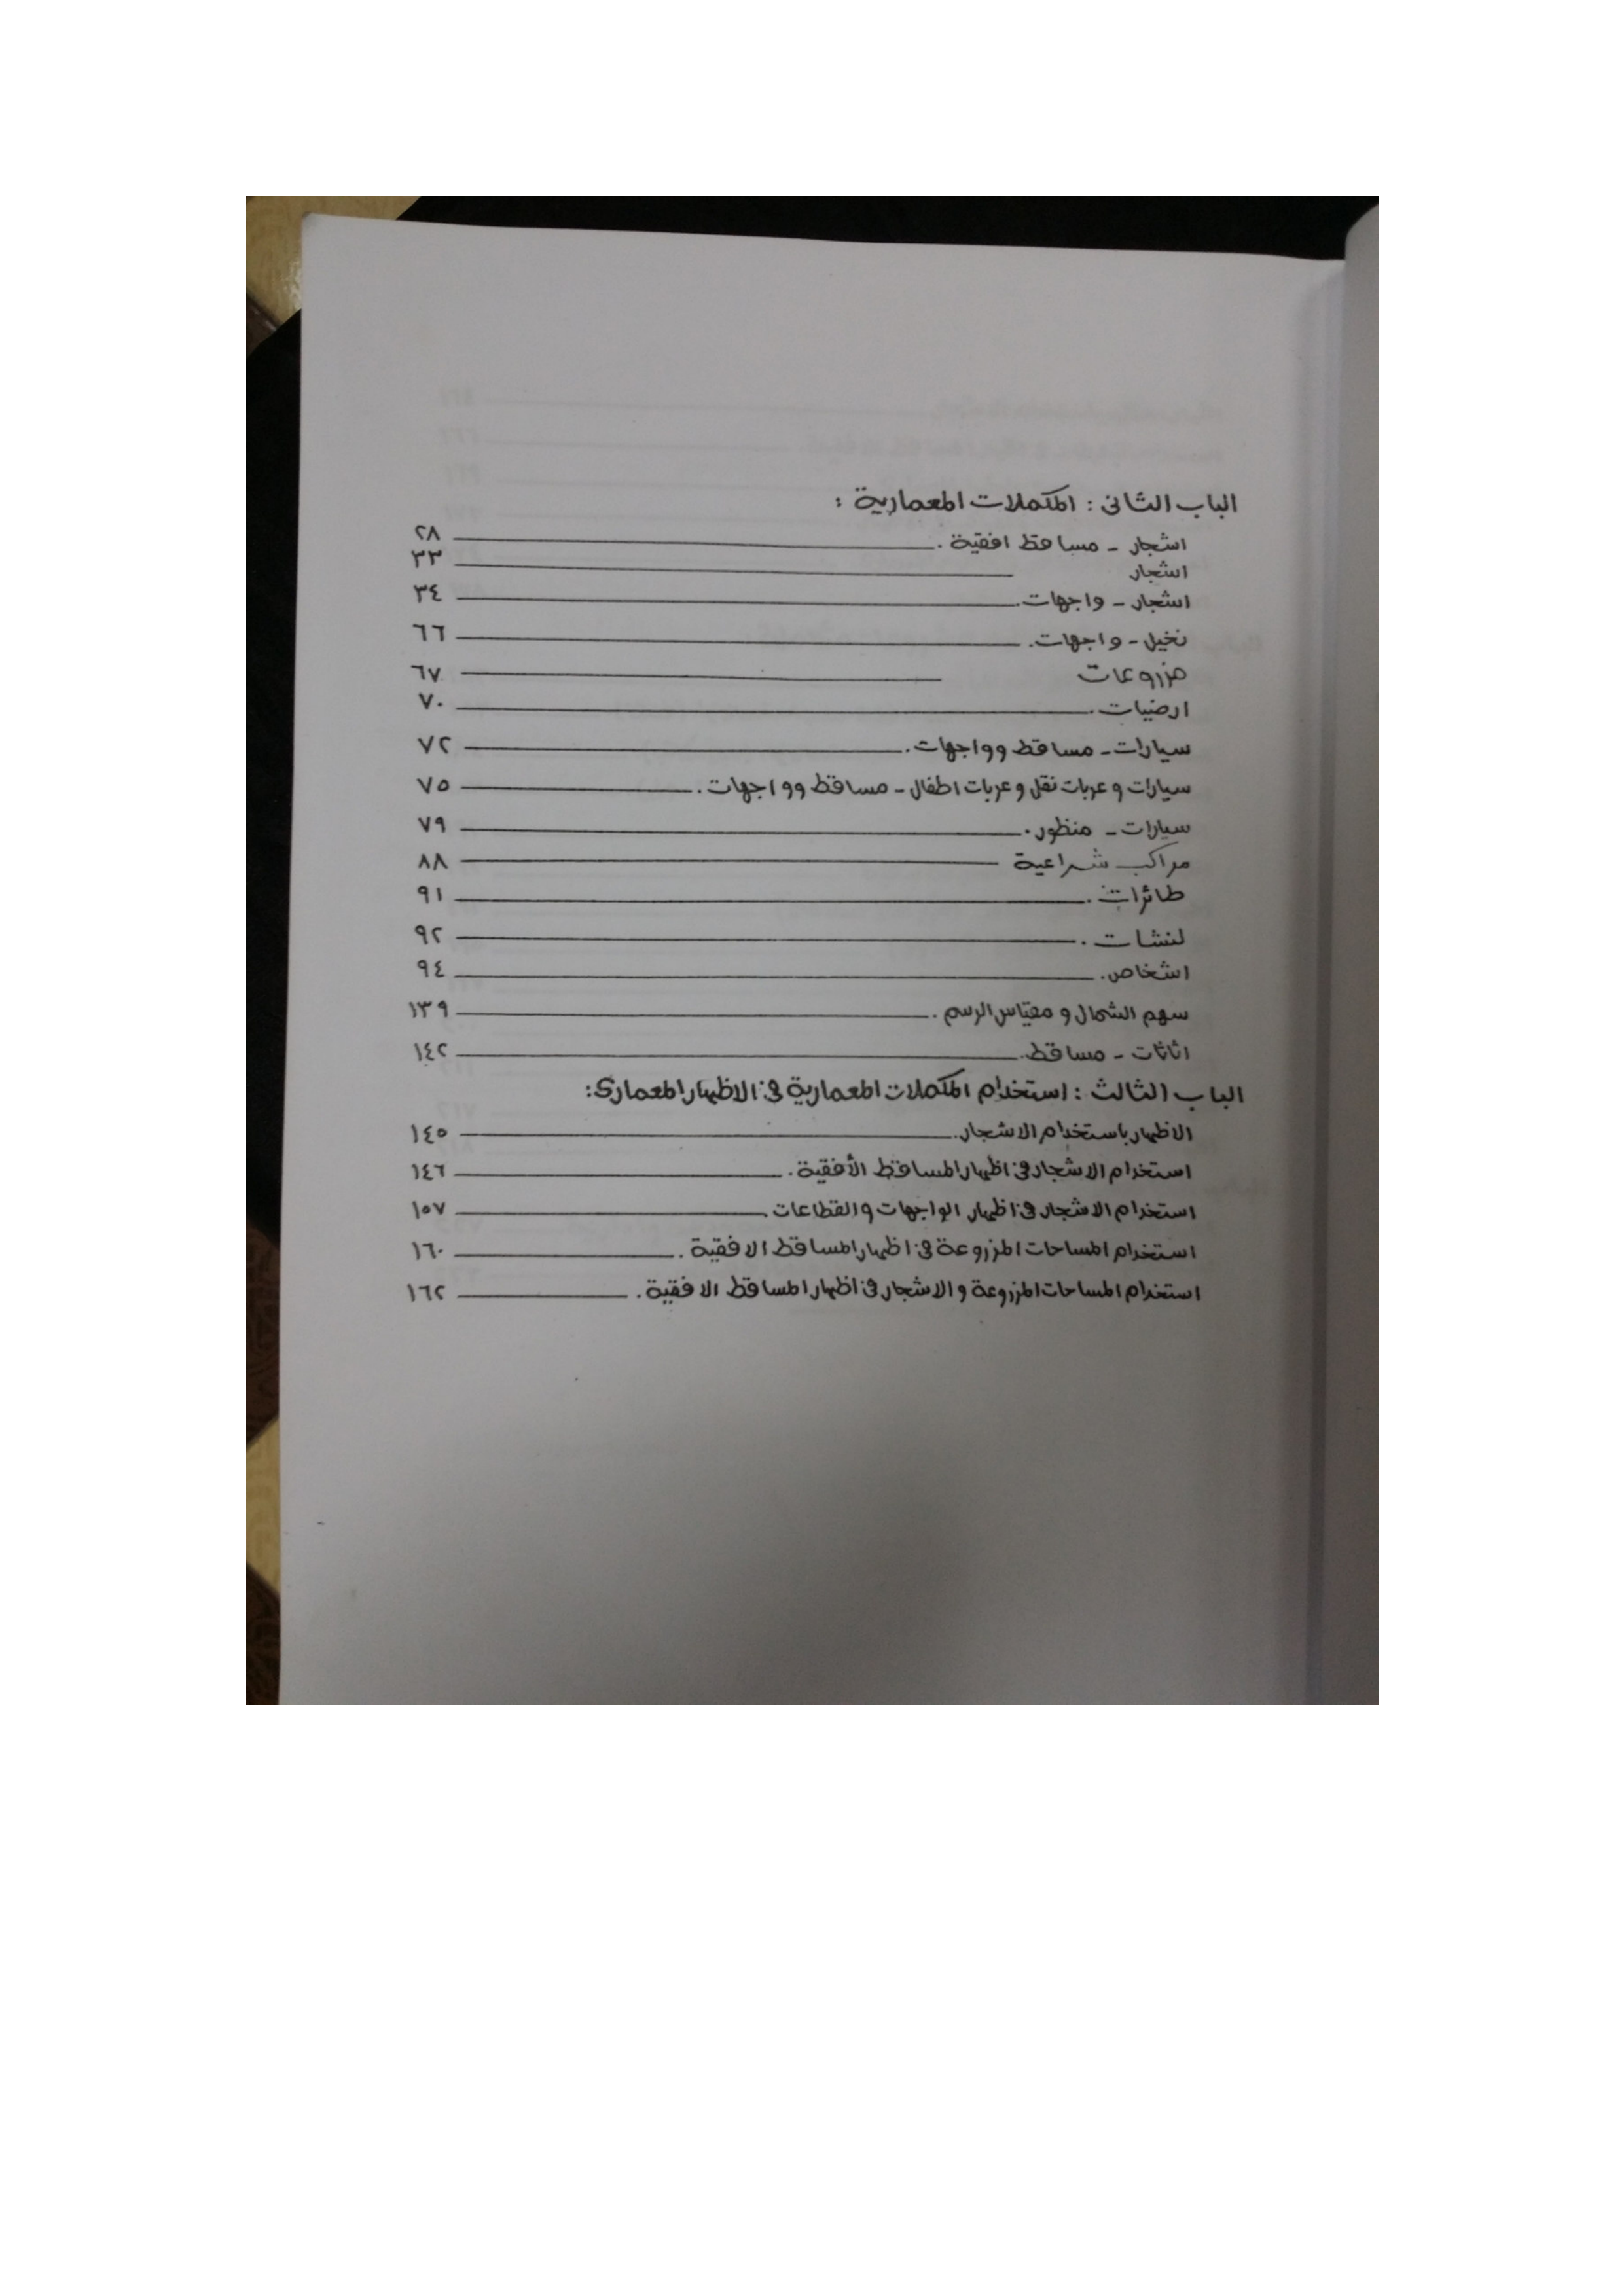 الباب الثانى : المكملات المعمارية :
اشجار - مساقط افقية . ٢٨
اشجار ٣٣
اشجار - واجهات . ٣٤
نخيل - واجهات . ٦٦
مزروعات ٦٧
ارضيات . ٧٠
سيارات - مساقط وواجهات . ٧٢
سيارات وعربات نقل وعربات اطفال - مساقط وواجهات . ٧٥
سيارات - منظور . ٧٩
مراكب شراعية ٨٨
طائرات . ٩١
لنشات . ٩٢
اشخاص . ٩٤
سهم الشمال و مقياس الرسم . ١٣٩
اثاثات - مساقط . ١٤٢
الباب الثالث : استخدام المكملات المعمارية فى الاظهار المعمارى :
الاظهار باستخدام الاشجار . ١٤٥
استخدام الاشجار فى اظهار المساقط الأفقية . ١٤٦
استخدام الاشجار فى اظهار الواجهات والقطاعات . ١٥٧
استخدام المساحات المزروعة فى اظهار المساقط الافقية . ١٦٠
استخدام المساحات المزروعة والاشجار فى اظهار المساقط الافقية . ١٦٢